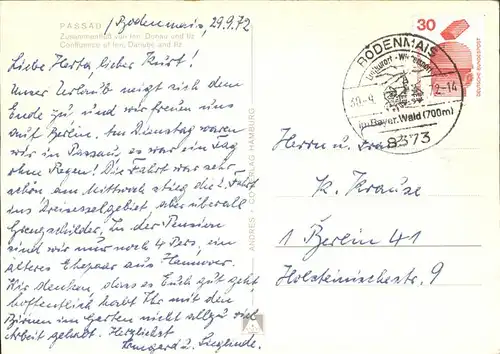 PASSAU
Zusammenfluß von Inn, Donau und Ilz
Confluence of Inn, Danube and Ilz
Bodenmais, 29.9.72
Liebe Herta, lieber Kurt!
Unser Urlaub neigt sich dem
Ende zu und wir freuen uns
auf Berlin. Am Dienstag waren
wir in Passau, es war ein Tag
ohne Regen! Die Fahrt war sehr
schön am Mittwoch stieg die 2. Fahrt
ins Dreisesselgebiet, aber überall
Grenzschilder. In der Pension
sind wir nur noch 4 Pers., ein
älteres Ehepaar aus Hannover.
Wir denken, dass es Euch gut geht
hoffentlich habt Ihr mit den
Birnen im Garten nicht allzu viel
Arbeit gehabt. Herzlichst
Irmgard u. Sieglinde.
ANDRES + CO VERLAG HAMBURG
30
DEUTSCHE BUNDESPOST
BODENMAIS
Luftkurort · Wintersport
30.-9. 72-14
im Bayer. Wald (700m)
8373
Herrn u. Frau
K. Krause
1 Berlin 41
Holsteinischestr. 9